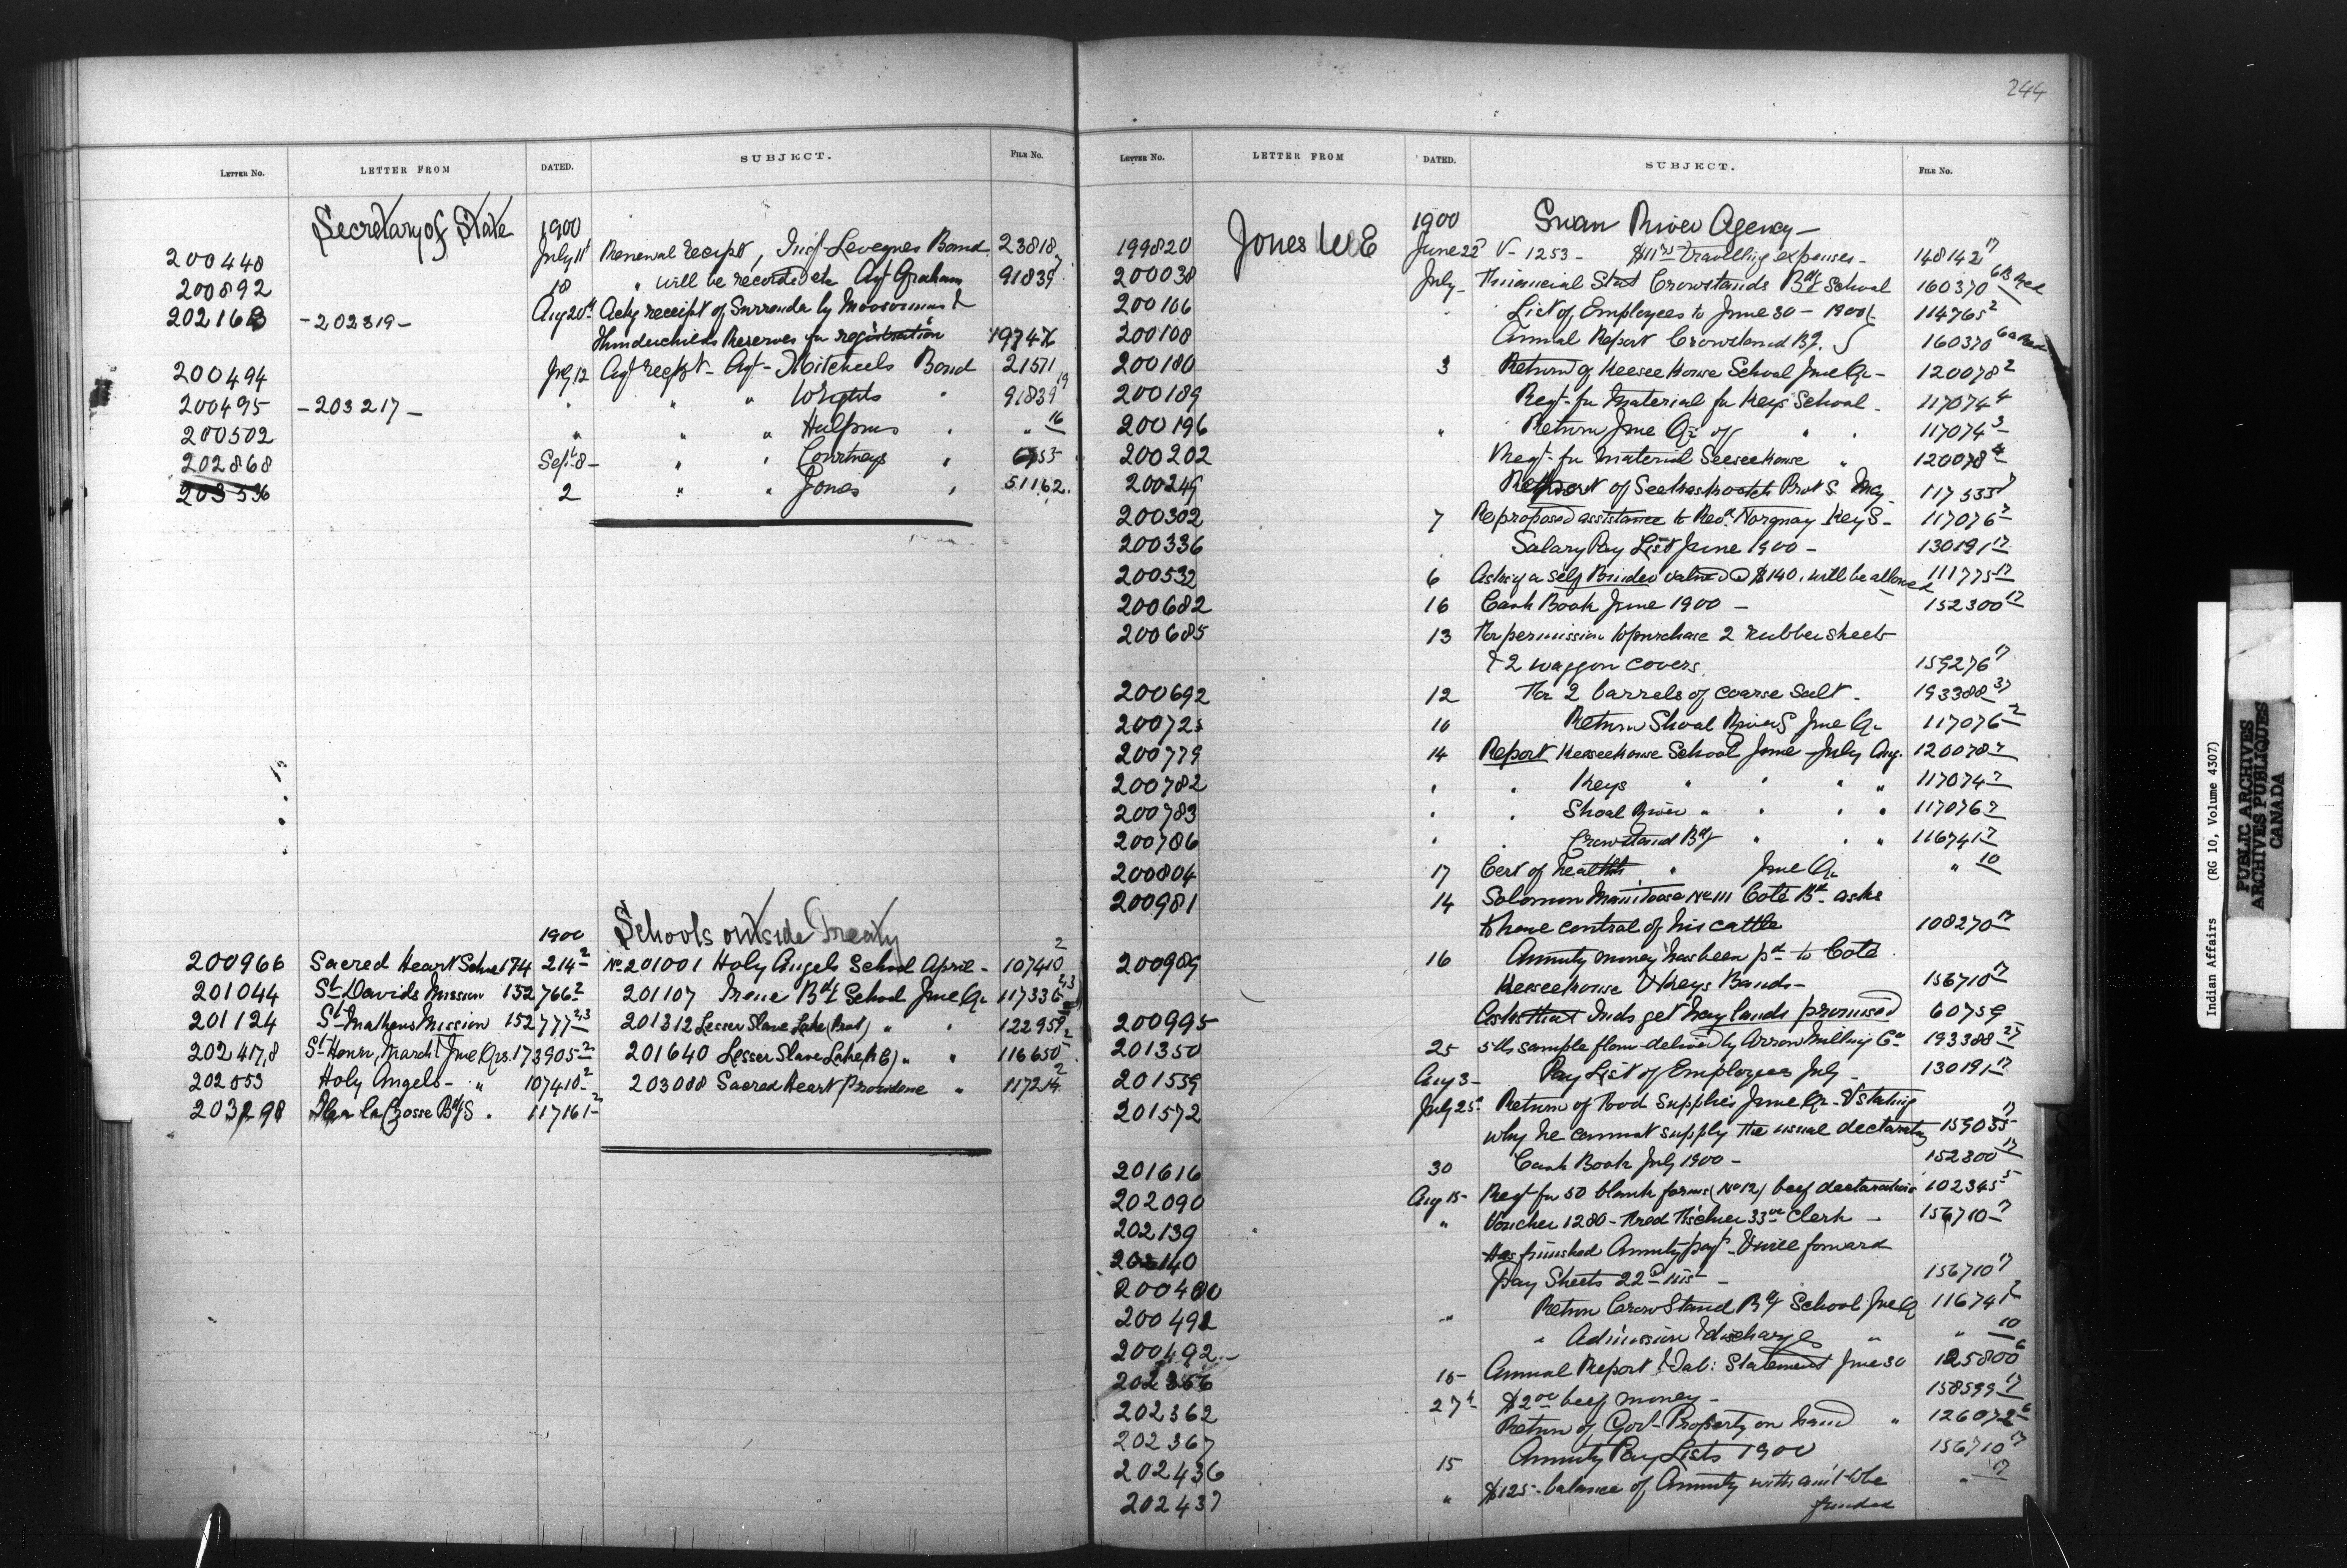 244
LETTER NO. LETTER FROM DATED. SUBJECT. FILE NO.
Secretary of State 1900
200448 July 11 Renewal receipt, Insp Levegnes Bond 23818
200892 18 " will be recorded etc Agt Graham 91839
202168 -202319- Aug 20th Ackg receipt of Surrender by Moosomins &
Thunderchilds Reserves for registration 19747
200494 July 12 Agt recpt - Agt - Mitchells Bond 21571
200495 -203217- " " " Wrights " 91839 19
200502 " " " Halpins " " 16
202868 Sept 8- " " Courtneys " 6753
203536 2 " " Jones " 51162.
1900 Schools outside Treaty
200966 Sacred Heart School 174 214 2 No 201001 Holy Angels School April - 107410 2
201044 St Davids Mission 152766 2 201107 Irene Bdg School Jne Qr 117336 2,3
201124 St Mathews Mission 152777 2,3 201312 Lesser Slave Lake (Prot) " " 122959 2
202417,8 St Henri, March & Jne Qrs. 173905 2 201640 Lesser Slave Lake (R C) " " 116650
202053 Holy Angels - " 107410 2 203088 Sacred Heart Providence " 117214 2
203298 Ile a la Crosse Bdg S. " 117161 2
LETTER NO. LETTER FROM DATED. SUBJECT. FILE NO.
Jones W E 1900 Swan River Agency -
199820 June 22 V - 1253 - $11 travelling expenses - 148142 17
200038 July - Financial Stat Crowstands Bdg School 160370
200106 " List of Employees to June 30 - 1900 114765 2
200108 Annual Report Crowstand Bg. 160370
200180 3 Return of Keeseekouse School Jne Qr - 120078 2
200189 Reqt. for Material for Keys School - 117074 4
200196 " Return Jne Qr of " " 117074 3
200202 Reqt. for Material Keeseekouse " 120078 4
200249 Report of Seekaskootch Prot S. May 117533 7
200302 7 Re proposed assistance to Revd. Norquay Key S - 117076 7
200336 " Salary Pay List June 1900 - 130191 17
200532 6 Asks if a self Binder valued @ $140. will be allowed 111775 17
200682 16 Cash Book June 1900 - 152300 17
200685 13 For permission to purchase 2 rubber sheets
& 2 waggon covers. 159276 17
200692 12 For 2 barrels of coarse salt. 193388 37
200725 10 Return Shoal River S Jne Qr 117076 2
200779 14 Report Keeseekouse School June - July Aug. 120078 7
200782 " " Keys " " " " 117074 7
200783 " " Shoal River " " " " 117076 7
200786 " " Crowstand Bdg " " " 116741 7
200804 17 Cert of health " June Qr " 10
200981 14 Solomon No 111 Cote Bd. asks
to have control of his cattle 108270 17
200989 16 Annuity money has been pd to Cote
Keeseekouse & Keys Bands - 156710 17
200995 Asks that Inds get hay lands promised 60759
201350 25 5 lbs sample flour delivered by Arrow Milling Co 193388 25
201539 Aug 3 - Pay List of Employees July - 130191 17
201572 July 25 Return of Food Supplies June Qr - & stating
why he cannot supply the usual declaration 159035 17
201616 30 Cash Book July 1900 - 152300 17
202090 Aug 15 - Reqt for 50 blank forms (No 12) beef declarations 102345 5
202139 " Voucher 1280 - Fred Fischer 33 00 Clerk - 156710 17
202140 Has finished Annuity payt. & will forward
Pay Sheets 22d inst - 156710 17
200480 " Return Crow Stand Bdg School Jne Q 116741 2
200491 " Admission & discharge " " 10
200492 - 16 - Annual Report & Tab: Statement June 30 125800 6
202356 27th $2 00 beef money - 158599 17
202362 Return of Govt Property on hand " 126072 6
202367 15 Annuity Pay Lists 1900 156710 17
202436 " $125 - balance of Annuity with ami't to be " 17
202437 funded
Indian Affairs (RG 10, Volume 4307)
PUBLIC ARCHIVES
ARCHIVES PUBLIQUES
CANADA